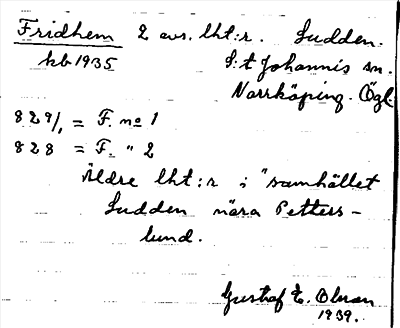 Fridhem 2 avs. lht:r. Sudden.
kb 1935 S:t Johannis sn.
Norrköping. Ögl.
829/1 = F. no 1
828 = F. " 2
Äldre lht:r i "samhället
Sudden nära Petters-
lund.
Gustaf E.
1939.